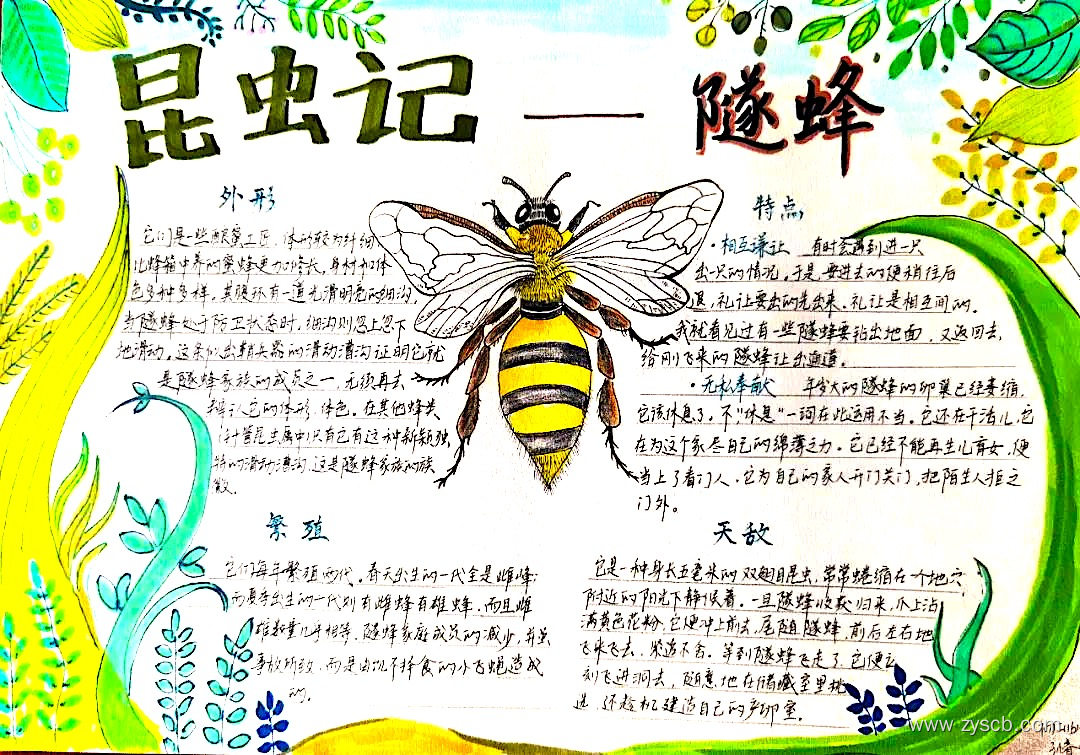 昆虫记——隧蜂
外形
它们是一些酿蜜工匠，体形较为纤细
比蜂箱中养的蜜蜂更加修长，身材和体
色多种多样。其腹环有一道光滑明亮的细沟，
当隧蜂处于防卫状态时，细沟则忽上忽下
地滑动，这条似出鞘兵器的滑动滑沟证明它就
是隧蜂家族的成员之一，无须再去
辨认它的体形、体色。在其他蜂类
（针管昆虫属中只有它有这种新颖独
特的滑动滑沟，这是隧蜂家族的族
徽。
特点
·相互谦让 有时会遇到进一只
出一只的情况。于是，要进去的便稍往后
退，礼让要出的先出来。礼让是相互间的。
我就看见过有一些隧蜂要钻出地面，又返回去，
给刚飞来的隧蜂让出通道。
·无私奉献 年岁大的隧蜂的卵巢已经萎缩，
它该休息了。不，"休息"一词在此运用不当。它还在干活儿，它
在为这个家尽自己的绵薄之力。它已经不能再生儿育女，便
当上了看门人，它为自己的家人开门关门，把陌生人拒之
门外。
繁殖
它们每年繁殖两代。春天出生的一代全是雌蜂；
而夏季出生的一代则有雌蜂有雄蜂，而且雌
雄数量几乎相等。隧蜂家庭成员的减少，并非
事故所致，而是由饥不择食的小飞蝇造成
的。
天敌
它是一种身长五毫米的双翅目昆虫，常常蜷缩在一个地穴
附近的阳光下静候着。一旦隧蜂收获归来，爪上沾
满黄色花粉，它便冲上前去，尾随隧蜂，前后左右地
飞来飞去，紧追不舍。等到隧蜂飞走了，它便立
刻飞进洞去，随意地在储藏室里挑
选，还趁机建造自己的产卵室。
www.zyscb.com